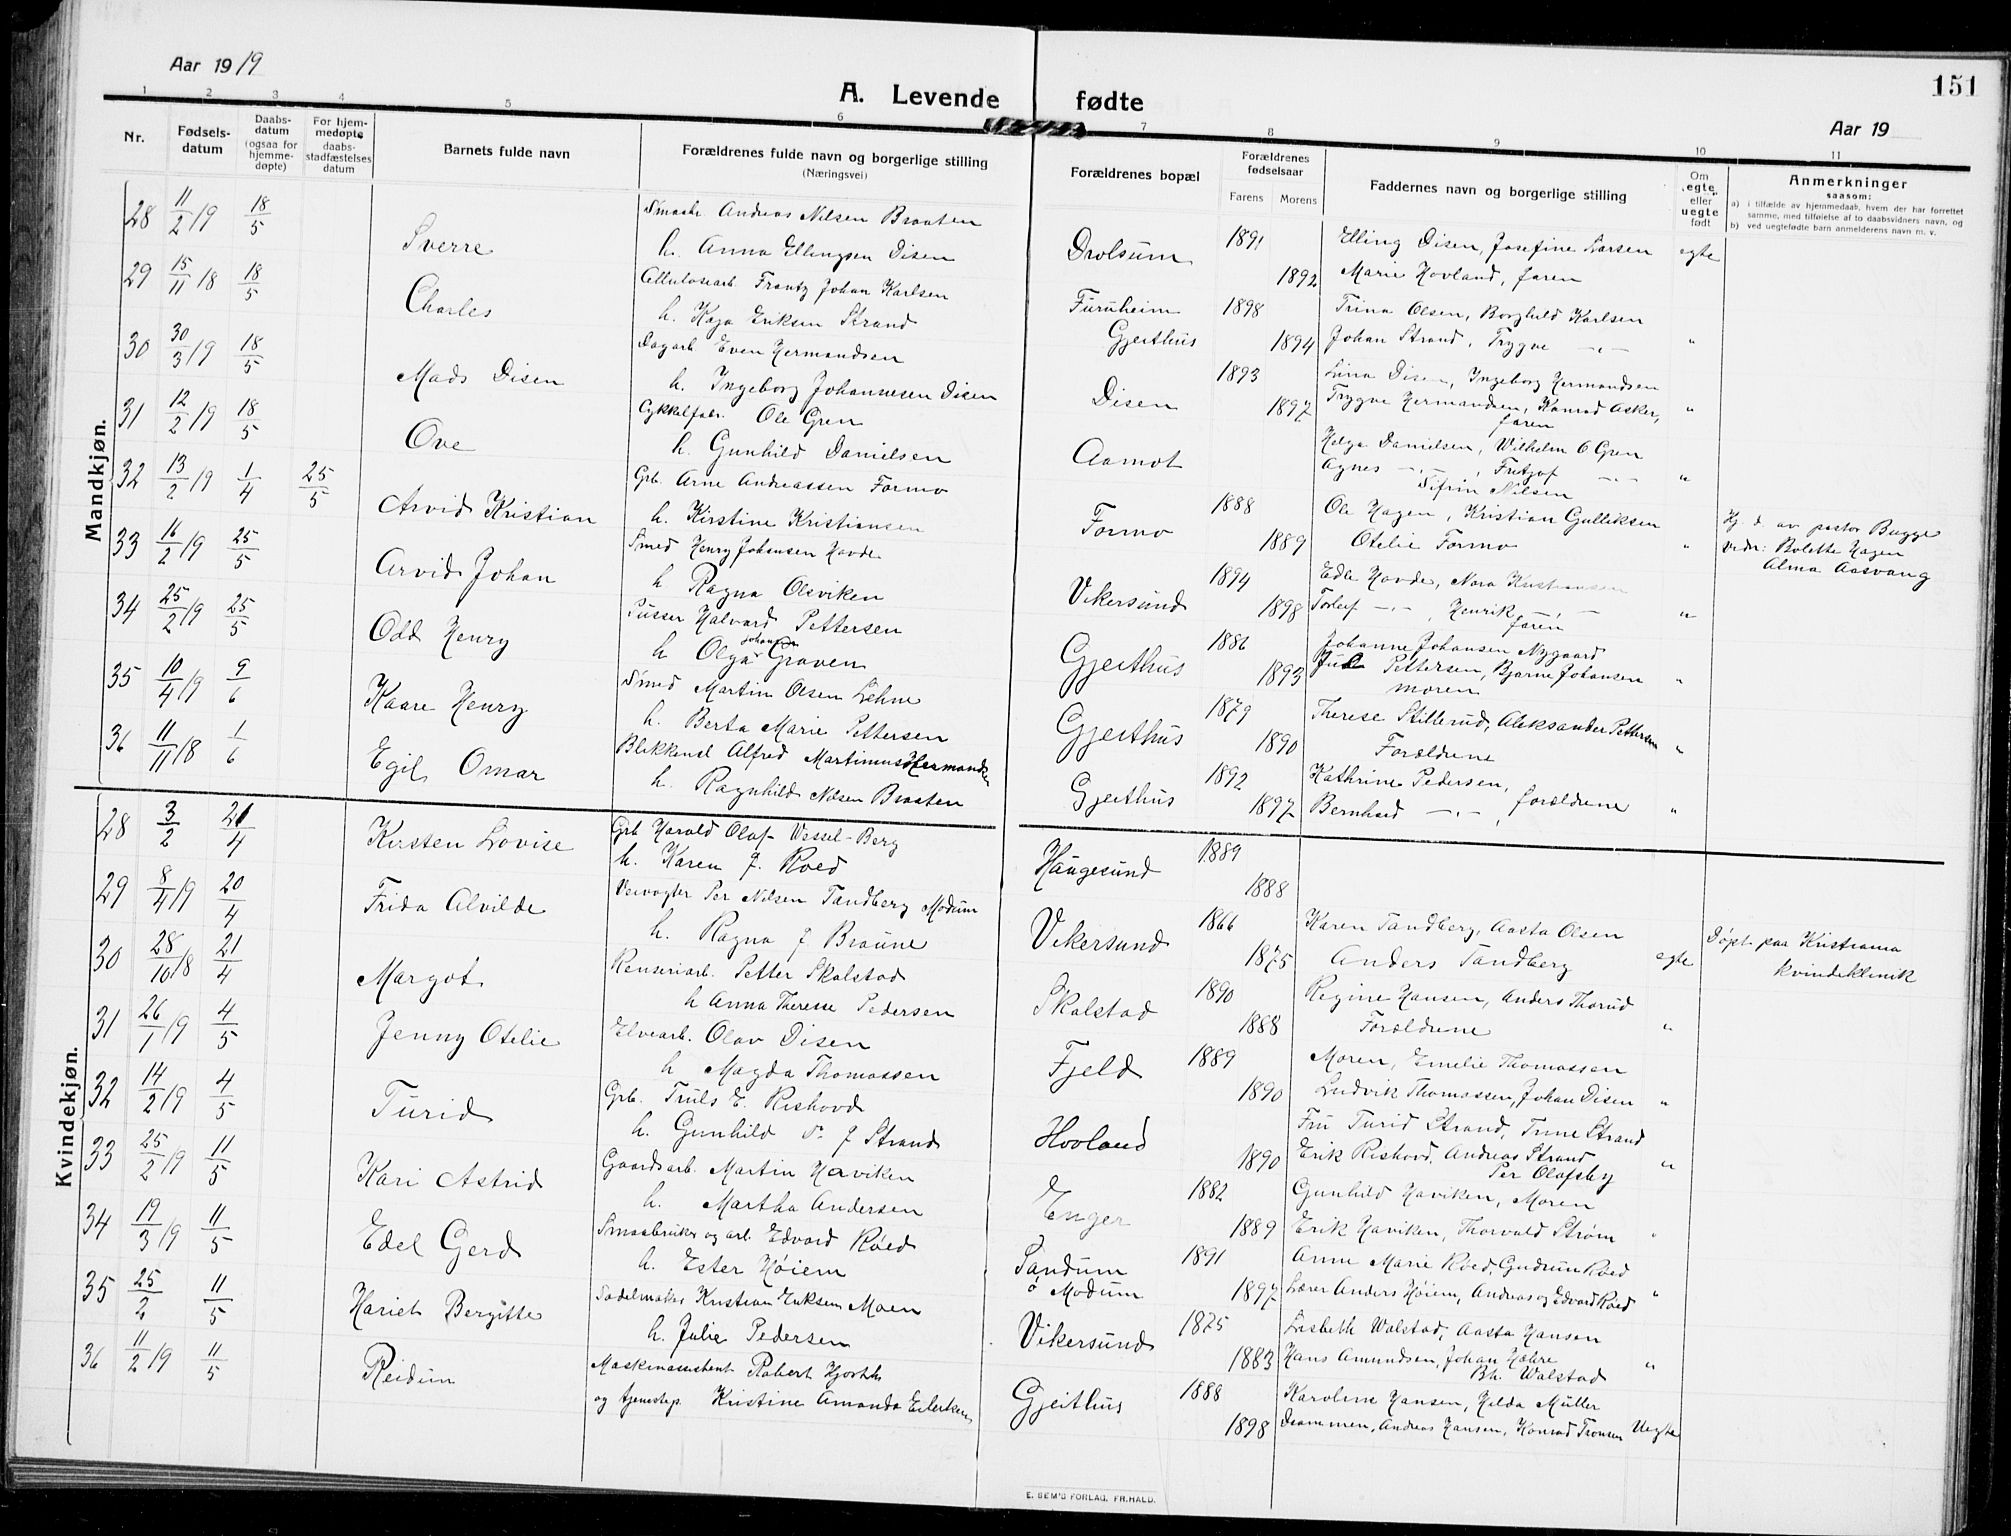 Aar 1919
A. Levende fødte
151
Aar 19
1 2 3 4 5 6 7 8 9 10 11
Nr.
Fødsels-
datum
Daabs-
datum
(ogsaa for
hjemme-
døpte)
For hjem-
medøpte
daabs-
stadfæstelses
datum
Barnets fulde navn
Forældrenes fulde navn og borgerlige stilling
(Næringsvei)
Forældrenes bopæl
Forældrenes
fødselsaar
Farens Morens
Faddernes navn og borgerlige stilling
Om
„egte“
eller
uegte
født
Anmerkninger
saasom:
a) i tilfælde av hjemmedaab, hvem der har forrettet
samme, med tilføielse af to daabsvidners navn, og
b) ved uegtefødte barn anmelderens navn m. v.
Mandkjøn.
28 11/2 19 18/5 Sverre
Smaabr. Andreas Nilsen Braaten
h. Anna Ellingsen Disen
Drolsum 1891 1892
Elling Disen, Josefine Larsen egte
Marie Hovland, faren
29 15/11 18 18/5 Charles
Cellulosearb. Frantz Johan Karlsen
h. Kaja Eriksen Strand
Furuheim
Gjeithus 1898 1894
Trina Olsen, Borghild Karlsen
Johan Strand, Trygve -"- "
30 30/3 19 18/5 Mads Disen
Dagarb. Even Hermandsen
h. Ingeborg Johannesen Disen
Disen 1893 1897
Lina Disen, Ingeborg Hermandsen
Trygve Hermandsen, Konrad Asker, "
faren
31 12/2 19 18/5 Ove
Cykkelfabr. Ole Gren
h. Gunhild Danielsen
Aamot
Helga Danielsen, Wilhelm O Gren
Agnes -"-, Fritjof -"- "
Sifrin Nilsen
32 13/2 19 1/4 25/5 Arvid Kristian
Grb. Arne Andreassen Formo
h. Kirstine Kristiansen
Formo 1888 1889
Ole Hagen, Kristian Gulliksen
Otelie Formo "
Hj. d. av pastor Bugge
vidn: Bolette Hagen
Alma Aasvang
33 16/2 19 25/5 Arvid Johan
Smed Henry Johansen Hovde
h Ragna Olsviken
Vikersund 1894 1898
Edle Hovde, Nora Kristiansen
Torleif -"-, Henrik -"- "
faren
34 25/2 19 25/5 Odd Henry
Pusser Halvard Pettersen
h Olga Johansen Graven
Gjeithus 1886 1893
Johanne Johansen Nygaard
Juul Pettersen, Bjarne Johansen "
moren
35 10/4 19 9/6 Kaare Henry
Smed Martin Olsen Lehne
h. Berta Marie Pettersen
Gjeithus 1879 1890
Therese Stillerud, Aleksander Pettersen "
Forældrene
36 11/11 18 1/6 Egil Omar
Blikkensl Alfred Martinius Hermandsen
h. Ragnhild Nilsen Braaten
Gjeithus 1892 1897
Kathrine Pedersen,
Bernhard -"-, forældrene "
Kvindekjøn.
28 3/2 21/4 Kirsten Lovise
Grb Harald Olaf Wessel-Berg
h. Karen f. Roed
Haugesund 1889 1888
29 8/4 19 20/4 Frida Alvilde
Veivogter Per Nilsen Tandberg Modum
h. Ragna f Braune
Vikersund 1866 1875
Karen Tandberg, Aasta Olsen
Anders Tandberg egte
Døpt paa Kristiania
kvindeklinik
30 28/10 18 21/4 Margot
Renseriarb. Petter Skalstad
h Anna Therese Pedersen
Skalstad 1890 1888
Regine Hansen, Anders Thorud
Forældrene "
31 26/1 19 4/5 Jenny Otelie
Elvearb. Olav Disen
h Magda Thomassen
Fjeld 1889 1890
Moren, Emelie Thomassen
Ludvik Thomassen, Johan Disen "
32 14/2 19 4/5 Turid
Grb. Truls E. Rishovd
h. Gunhild f Strand
Hovland 1890
Fru Turid Strand, Trine Strand
Erik Rishovd, Andreas Strand "
Per Olafsby
33 25/2 19 11/5 Kari Astrid
Gaardsarb. Martin Haviken
h. Martha Andersen
Enger 1882 1889
Gunhild Haviken, Moren
Erik Haviken, Thorvald Strøm "
34 19/3 19 11/5 Edel Gerd
Smaabruker og arb. Edvard Røed
h. Ester Høiem
Sandum
ø Modum 1891 1897
Anne Marie Roed, Gudrun Roed
Lærer Anders Høiem, Andreas og Edvard Røed "
35 25/2 11/5 Hariet Bergitte
Sadelmaker Kristian Eriksen Moen
h. Julie Pedersen
Vikersund 1875 1883
Lisbeth Walstad, Aasta Hansen
Hans Amundsen, Johan Hæhre "
Bh. Walstad
36 11/2 19 11/5 Reidun
Maskinassistent Robert Hjorth
og tjenestep. Kristine Amanda Eilertsen
Gjeithus 1888 1898
Karoline Hansen, Hilda Müller
Drammen, Andreas Hansen, Konrad Tronsen Uegte
E. SEM'S FORLAG, FR.HALD.